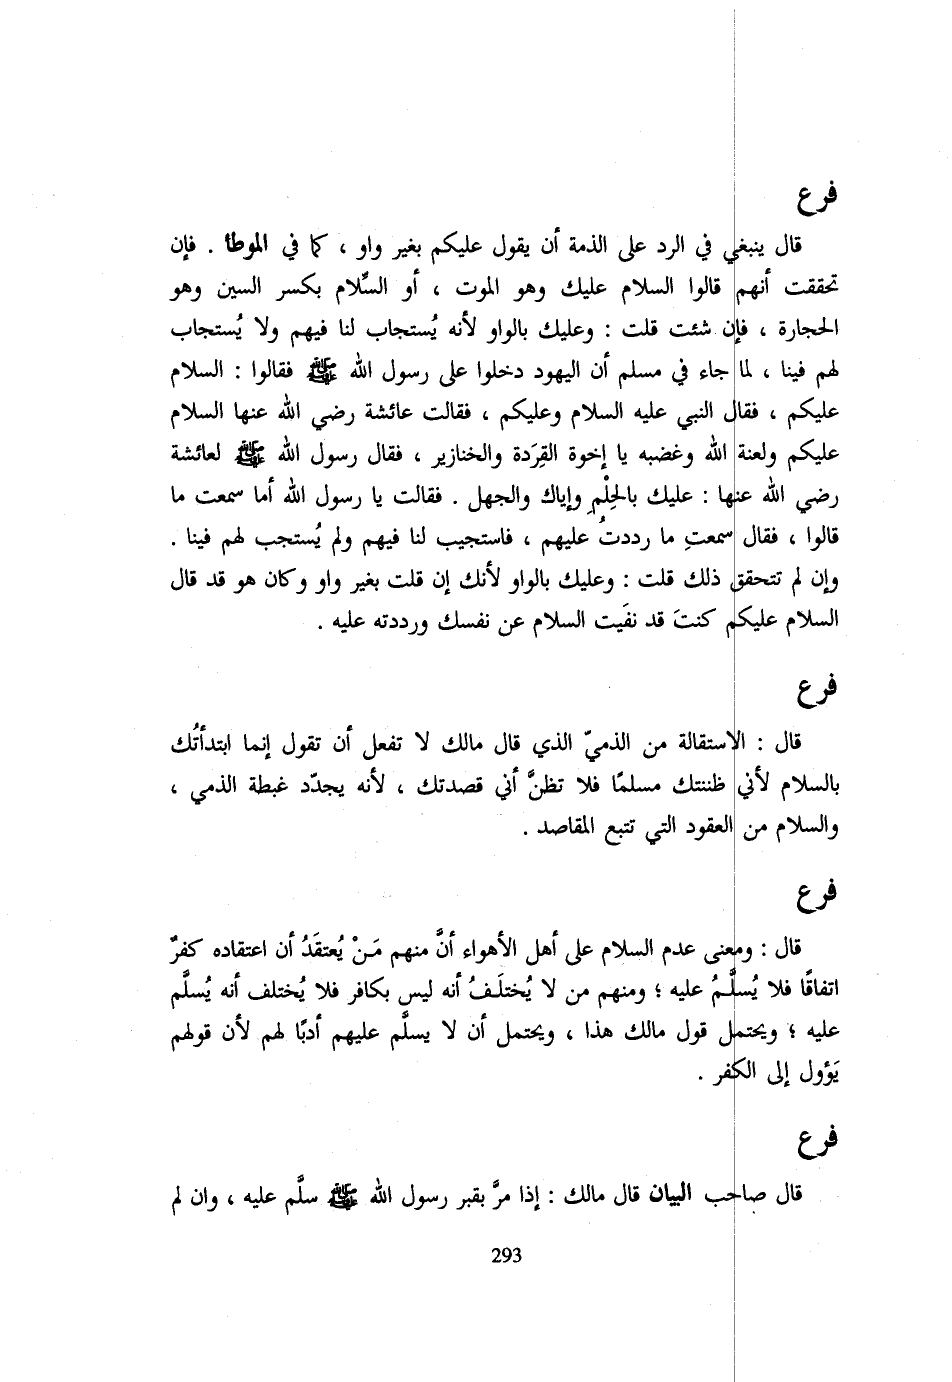 فرع
قال ينبغي في الرد على الذمة أن يقول عليكم بغير واو ، كما في الموطأ . فإن
تحققت أنهم قالوا السلام عليك وهو الموت ، أو السِّلام بكسر السين وهو
الحجارة ، فإن شئت قلت : وعليك بالواو لأنه يُستجاب لنا فيهم ولا يُستجاب
لهم فينا ، لما جاء في مسلم أن اليهود دخلوا على رسول الله ﷺ فقالوا : السلام
عليكم ، فقال النبي عليه السلام وعليكم ، فقالت عائشة رضي الله عنها السلام
عليكم ولعنة الله وغضبه يا إخوة القِرَدة والخنازير ، فقال رسول الله ﷺ لعائشة
رضي الله عنها : عليك بالحِلْمِ وإياك والجهل . فقالت يا رسول الله أما سمعت ما
قالوا ، فقال سمعتِ ما رددتُ عليهم ، فاستجيب لنا فيهم ولم يُستجب لهم فينا .
وإن لم تتحقق ذلك قلت : وعليك بالواو لأنك إن قلت بغير واو وكان هو قد قال
السلام عليكم كنتَ قد نفَيت السلام عن نفسك ورددته عليه .
فرع
قال : الاستقالة من الذميّ الذي قال مالك لا تفعل أن تقول إنما ابتدأتُك
بالسلام لأني ظننتك مسلمًا فلا تظنَّ أني قصدتك ، لأنه يجدّد غبطة الذمي ،
والسلام من العقود التي تتبع المقاصد .
فرع
قال : ومعنى عدم السلام على أهل الأهواء أنَّ منهم مَنْ يُعتقَدُ أن اعتقاده كفرٌ
اتفاقًا فلا يُسلَّمُ عليه ؛ ومنهم من لا يُختلَفُ أنه ليس بكافر فلا يُختلف أنه يُسلَّم
عليه ؛ ويحتمل قول مالك هذا ، ويحتمل أن لا يسلَّم عليهم أدبًا لهم لأن قولهم
يَؤول إلى الكفر .
فرع
قال صاحب البيان قال مالك : إذا مرَّ بقبر رسول الله ﷺ سلَّم عليه ، وان لم
293